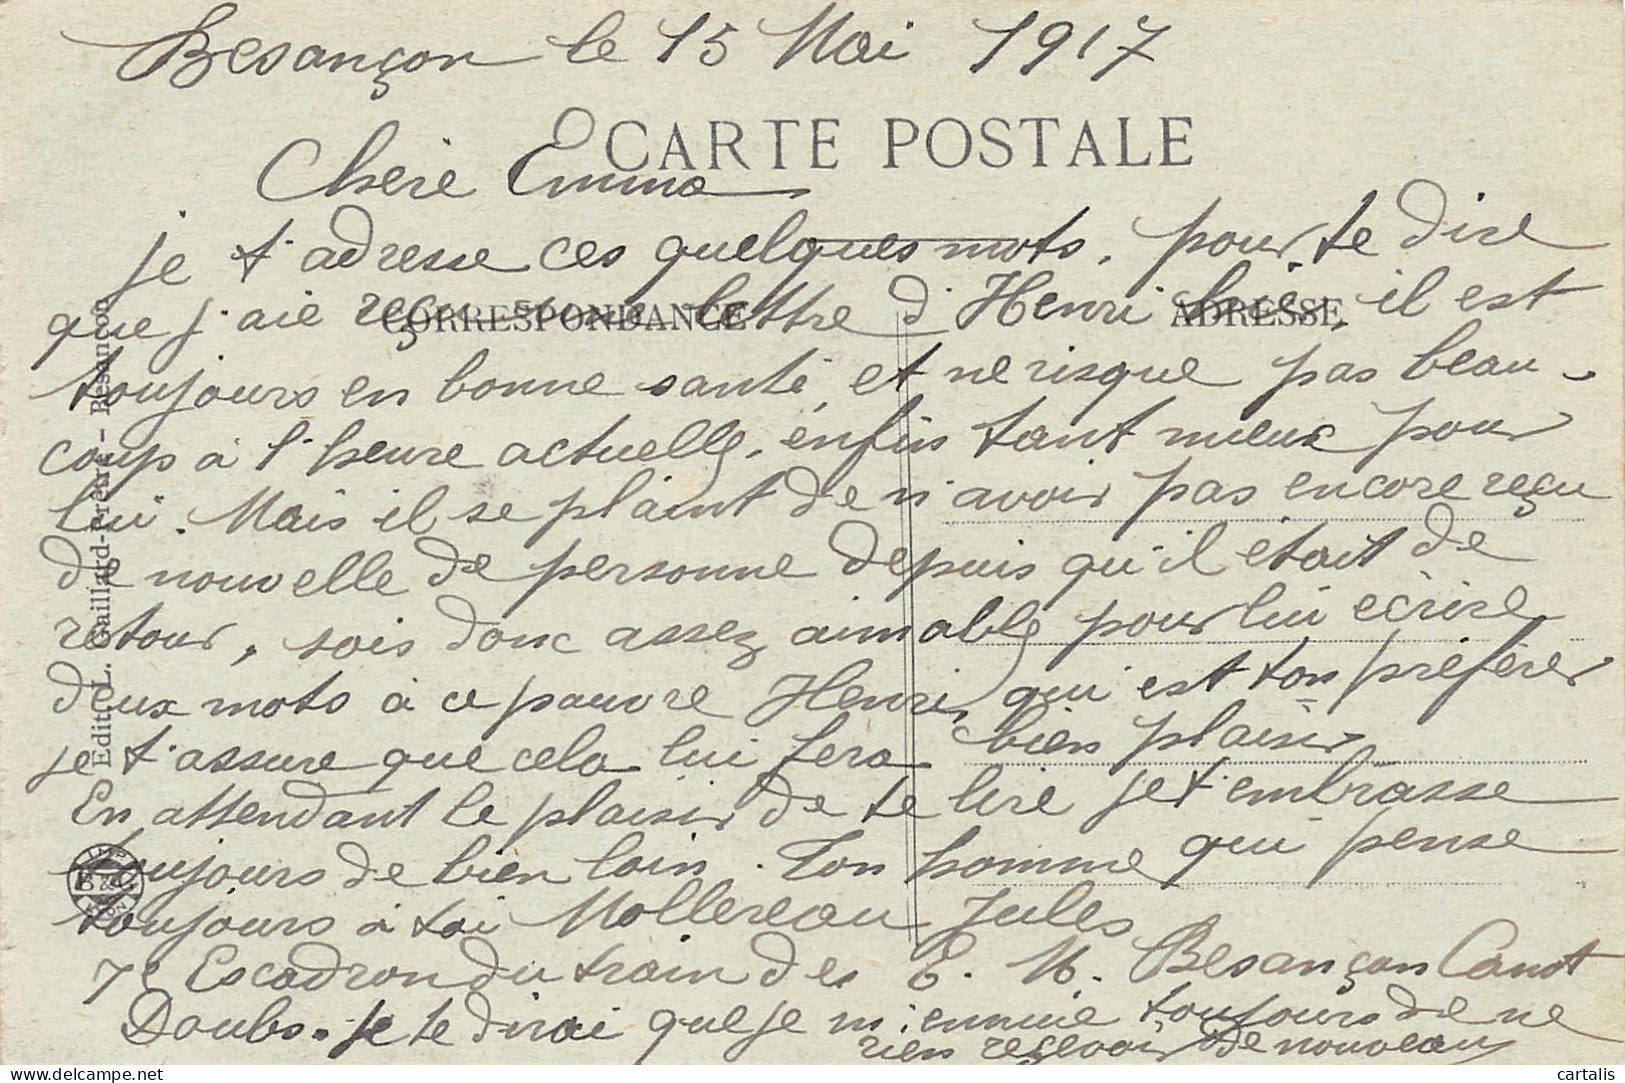 Besançon le 15 Mai 1917
CARTE POSTALE
Chère Emma
je t'adresse ces quelques mots, pour te dire
que j'aie reçu une lettre d'Henri hier, il est
CORRESPONDANCE
ADRESSE
toujours en bonne santé, et ne risque pas beau-
coup à l'heure actuelle, enfin tant mieux pour
lui. Mais il se plaint de n'avoir pas encore reçu
de nouvelle de personne depuis qu'il était de
retour, sois donc assez aimable pour lui écrire
deux mots à ce pauvre Henri, qui est ton préférer
je t'assure que cela lui fera bien plaisir
En attendant le plaisir de te lire je t'embrasse
toujours de bien loin. Ton homme qui pense
toujours à toi Mollereau Jules
7e Escadron du train des E. M. Besançon Canot
Doubs. Je te dirai que je m'ennuie toujours de ne
rien reçevoir de nouveau
Edit. L. Gaillard-Prêtre - Besançon